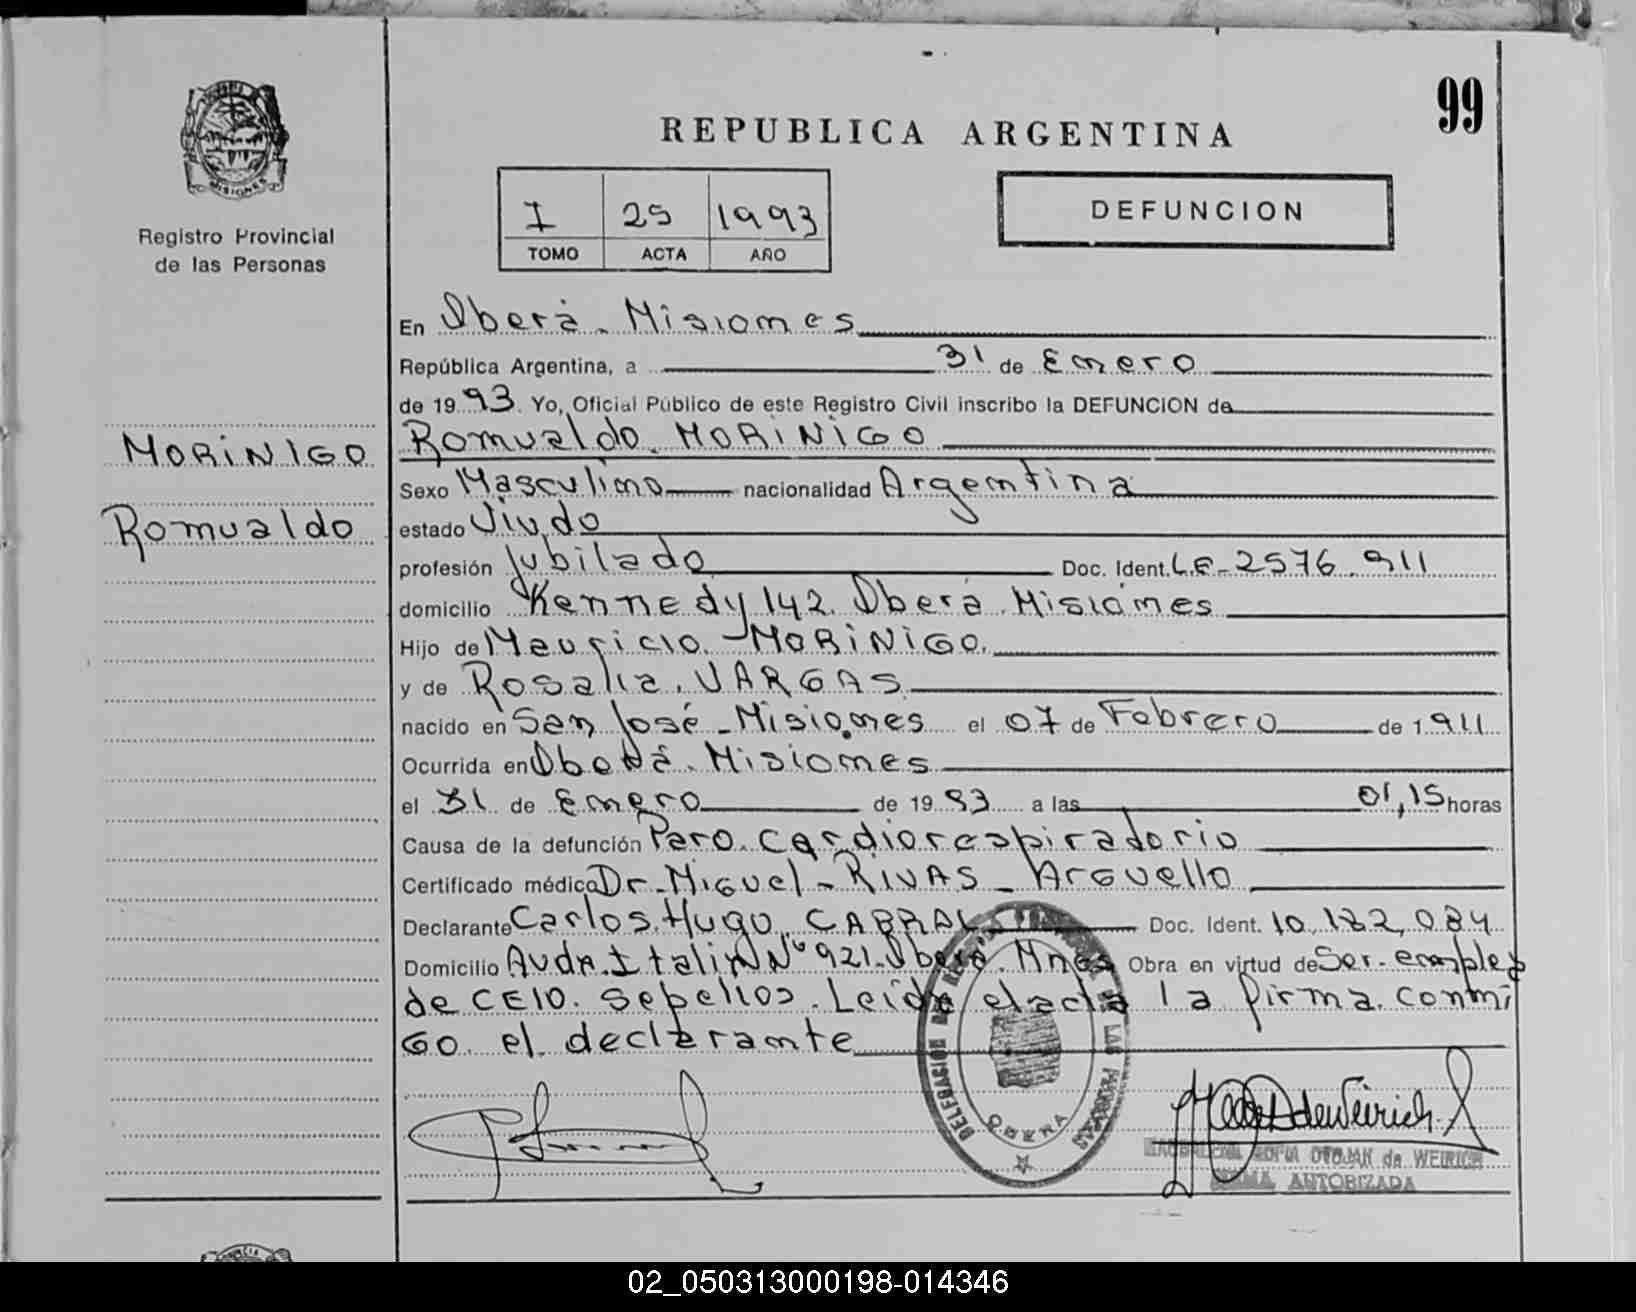 99
REPUBLICA ARGENTINA
MISIONES
Registro Provincial
de las Personas
I 25 1993
TOMO ACTA AÑO
DEFUNCION
En Oberá. Misiones
República Argentina, a 31 de Enero
de 1993. Yo, Oficial Público de este Registro Civil inscribo la DEFUNCION de
MORiNIGO
Romualdo
Romualdo. MORiNiGO
Sexo Masculino nacionalidad Argentina
estado Viudo
profesión Jubilado Doc. Ident. L.E-2576.911
domicilio Kennedy 142. Oberá. Misiones
Hijo de Mauricio. MORiNiGO.
y de Rosalia. VARGAS
nacido en San José-Misiones el 07 de Febrero de 1911
Ocurrida en Oberá. Misiones
el 31 de Enero de 1993 a las 01,15 horas
Causa de la defunción Paro. Cardiorespiratorio
Certificado médico Dr-Miguel-RIVAS-Arguello
Declarante Carlos. Hugo. CABRAL Doc. Ident. 10.182.084
Domicilio Avda. Italia Nº 921. Oberá. Mnes Obra en virtud de Ser. emplea
de CEIO. Sepelios. Leida el acta la firma. conmi
GO. el. declarante
DELEGACION DEL REGISTRO DE LAS PERSONAS
OBERA
de WEIRICH
FIRMA AUTORIZADA
02_050313000198-014346